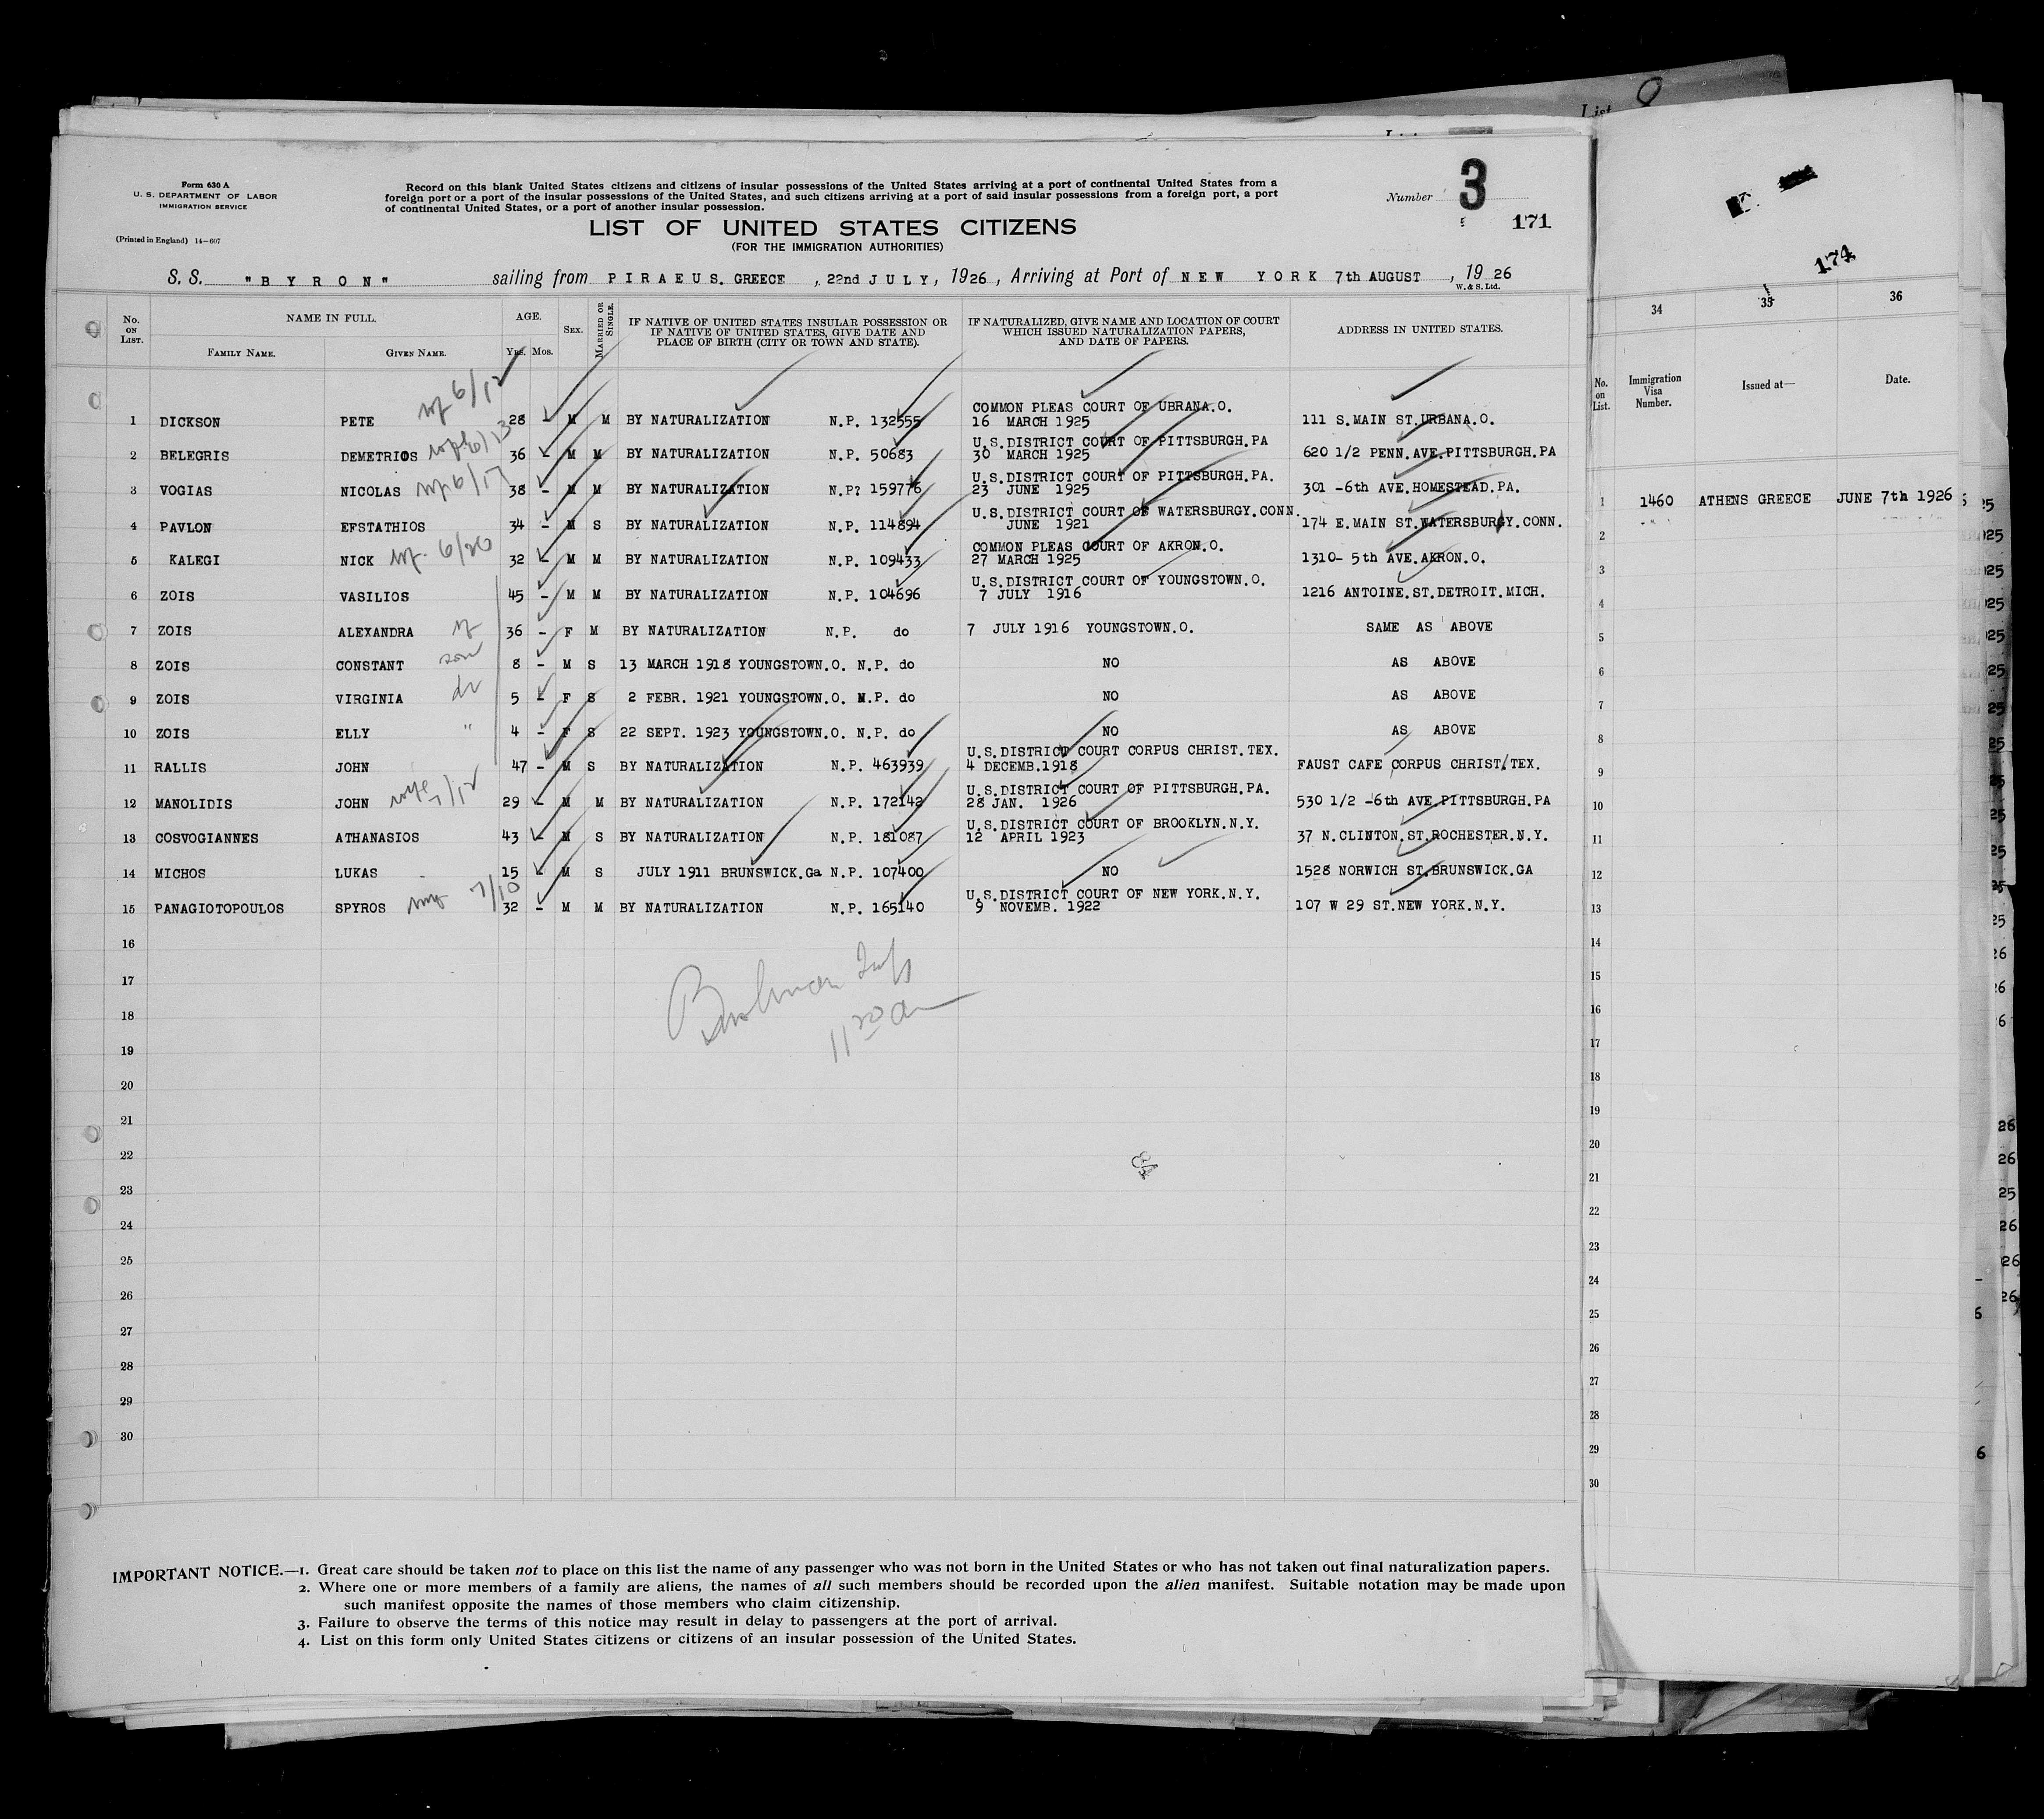 List 9
Form 630 A
U. S. DEPARTMENT OF LABOR
IMMIGRATION SERVICE
(Printed in England) 14-607
Record on this blank United States citizens and citizens of insular possessions of the United States arriving at a port of continental United States from a
foreign port or a port of the insular possessions of the United States, and such citizens arriving at a port of said insular possessions from a foreign port, a port
of continental United States, or a port of another insular possession.
LIST OF UNITED STATES CITIZENS
(FOR THE IMMIGRATION AUTHORITIES)
Number 3
171
S. S. "BYRON" sailing from PIRAEUS. GREECE , 22nd JULY, 1926, Arriving at Port of NEW YORK 7th AUGUST , 19 26
W. & S. Ltd.
No. ON LIST. NAME IN FULL. FAMILY NAME. GIVEN NAME. AGE. Yrs. Mos. SEX. MARRIED OR SINGLE. IF NATIVE OF UNITED STATES INSULAR POSSESSION OR IF NATIVE OF UNITED STATES, GIVE DATE AND PLACE OF BIRTH (CITY OR TOWN AND STATE). IF NATURALIZED, GIVE NAME AND LOCATION OF COURT WHICH ISSUED NATURALIZATION PAPERS, AND DATE OF PAPERS. ADDRESS IN UNITED STATES.
1 DICKSON PETE 6/12 28 - M M BY NATURALIZATION N.P. 132555 COMMON PLEAS COURT OF UBRANA.O. 16 MARCH 1925 111 S.MAIN ST.URBANA.O.
2 BELEGRIS DEMETRIOS 36 - M M BY NATURALIZATION N.P. 50683 U.S.DISTRICT COURT OF PITTSBURGH.PA 30 MARCH 1925 620 1/2 PENN.AVE.PITTSBURGH.PA
3 VOGIAS NICOLAS 6/17 38 - M M BY NATURALIZATION N.P? 159776 U.S.DISTRICT COURT OF PITTSBURGH.PA. 23 JUNE 1925 301 -6th AVE.HOMESTEAD.PA.
4 PAVLON EFSTATHIOS 34 - M S BY NATURALIZATION N.P. 114894 U.S.DISTRICT COURT OF WATERSBURGY.CONN. JUNE 1921 174 E.MAIN ST.WATERSBURGY.CONN.
5 KALEGI NICK 6/20 32 M M BY NATURALIZATION N.P. 109433 COMMON PLEAS COURT OF AKRON.O. 27 MARCH 1925 1310- 5th AVE.AKRON.O.
6 ZOIS VASILIOS 45 - M M BY NATURALIZATION N.P. 104696 U.S.DISTRICT COURT OF YOUNGSTOWN.O. 7 JULY 1916 1216 ANTOINE.ST.DETROIT.MICH.
7 ZOIS ALEXANDRA 36 - F M BY NATURALIZATION N.P. do 7 JULY 1916 YOUNGSTOWN.O. SAME AS ABOVE
8 ZOIS CONSTANT son 8 - M S 13 MARCH 1918 YOUNGSTOWN.O. N.P. do NO AS ABOVE
9 ZOIS VIRGINIA 5 - F S 2 FEBR. 1921 YOUNGSTOWN.O. N.P. do NO AS ABOVE
10 ZOIS ELLY " 4 - F S 22 SEPT. 1923 YOUNGSTOWN.O. N.P. do NO AS ABOVE
11 RALLIS JOHN 47 - M S BY NATURALIZATION N.P. 463939 U.S.DISTRICT COURT CORPUS CHRIST.TEX. 4 DECEMB.1918 FAUST CAFE CORPUS CHRIST.TEX.
12 MANOLIDIS JOHN wife 7/12 29 - M M BY NATURALIZATION N.P. 172142 U.S.DISTRICT COURT OF PITTSBURGH.PA. 28 JAN. 1926 530 1/2 -6th AVE.PITTSBURGH.PA
13 COSVOGIANNES ATHANASIOS 43 - M S BY NATURALIZATION N.P. 181087 U.S.DISTRICT COURT OF BROOKLYN.N.Y. 12 APRIL 1923 37 N.CLINTON.ST.ROCHESTER.N.Y.
14 MICHOS LUKAS 15 - M S JULY 1911 BRUNSWICK.Ga N.P. 107400 NO 1528 NORWICH ST.BRUNSWICK.GA
15 PANAGIOTOPOULOS SPYROS 7/10 32 - M M BY NATURALIZATION N.P. 165140 U.S.DISTRICT COURT OF NEW YORK.N.Y. 9 NOVEMB. 1922 107 W 29 ST.NEW YORK.N.Y.
16
17
18
11 20 am
19
20
21
22
23
24
25
26
27
28
29
30
IMPORTANT NOTICE.—1. Great care should be taken not to place on this list the name of any passenger who was not born in the United States or who has not taken out final naturalization papers.
2. Where one or more members of a family are aliens, the names of all such members should be recorded upon the alien manifest. Suitable notation may be made upon
such manifest opposite the names of those members who claim citizenship.
3. Failure to observe the terms of this notice may result in delay to passengers at the port of arrival.
4. List on this form only United States citizens or citizens of an insular possession of the United States.
174
34 35 36
No. on List. Immigration Visa Number. Issued at— Date.
1 1460 ATHENS GREECE JUNE 7th 1926
2
3
4
5
6
7
8
9
10
11
12
13
14
15
16
17
18
19
20
21
22
23
24
25
26
27
28
29
30